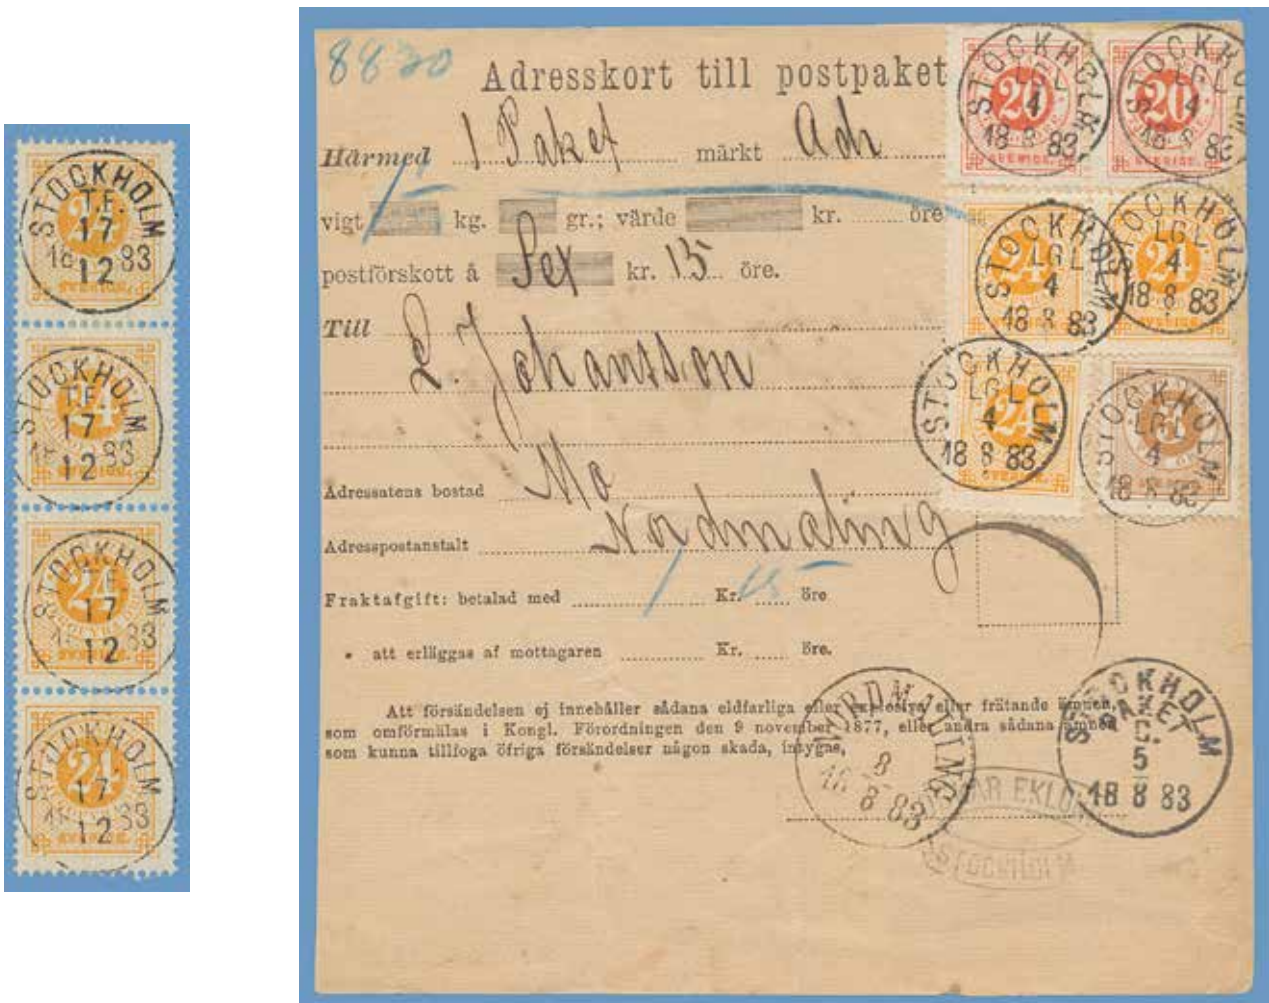 STOCKHOLM
T.E.
17
18 83
12
24
STOCKHOLM
17
18 83
12
24
SVERIGE.
STOCKHOLM
17
18 83
12
24
STOCKHOLM
17
83
12
24
SVERIGE.
8820
Adresskort till postpaket
Härmed 1 Paket märkt Adr
vigt kg. gr.; värde kr. öre
postförskott å Sex kr. 15 öre.
Till
L. Johansson
Adressatens bostad Mo
Adresspostanstalt Nordmaling
Fraktafgift: betalad med 1 Kr. 15 öre
" att erläggas af mottagaren Kr. öre.
Att försändelsen ej innehåller sådana eldfarliga eller explosiva eller frätande ämnen,
som omförmälas i Kongl. Förordningen den 9 november 1877, eller andra sådana ämnen
som kunna tillfoga öfriga försändelser någon skada, intygas,
20 SVERIGE.
STOCKHOLM
LGL
4
18 8 83
20 SVERIGE.
STOCKHOLM
LGL
4
18 8 83
24
STOCKHOLM
LGL
4
18 8 83
24
STOCKHOLM
LGL
4
18 8 83
24
STOCKHOLM
LGL
4
18 8 83
3
STOCKHOLM
LGL
4
18 8 83
NORDMALING
8
18 8 83
STOCKHOLM
PAKET
C.
5
18 8 83
EKLUND
STOCKHOLM